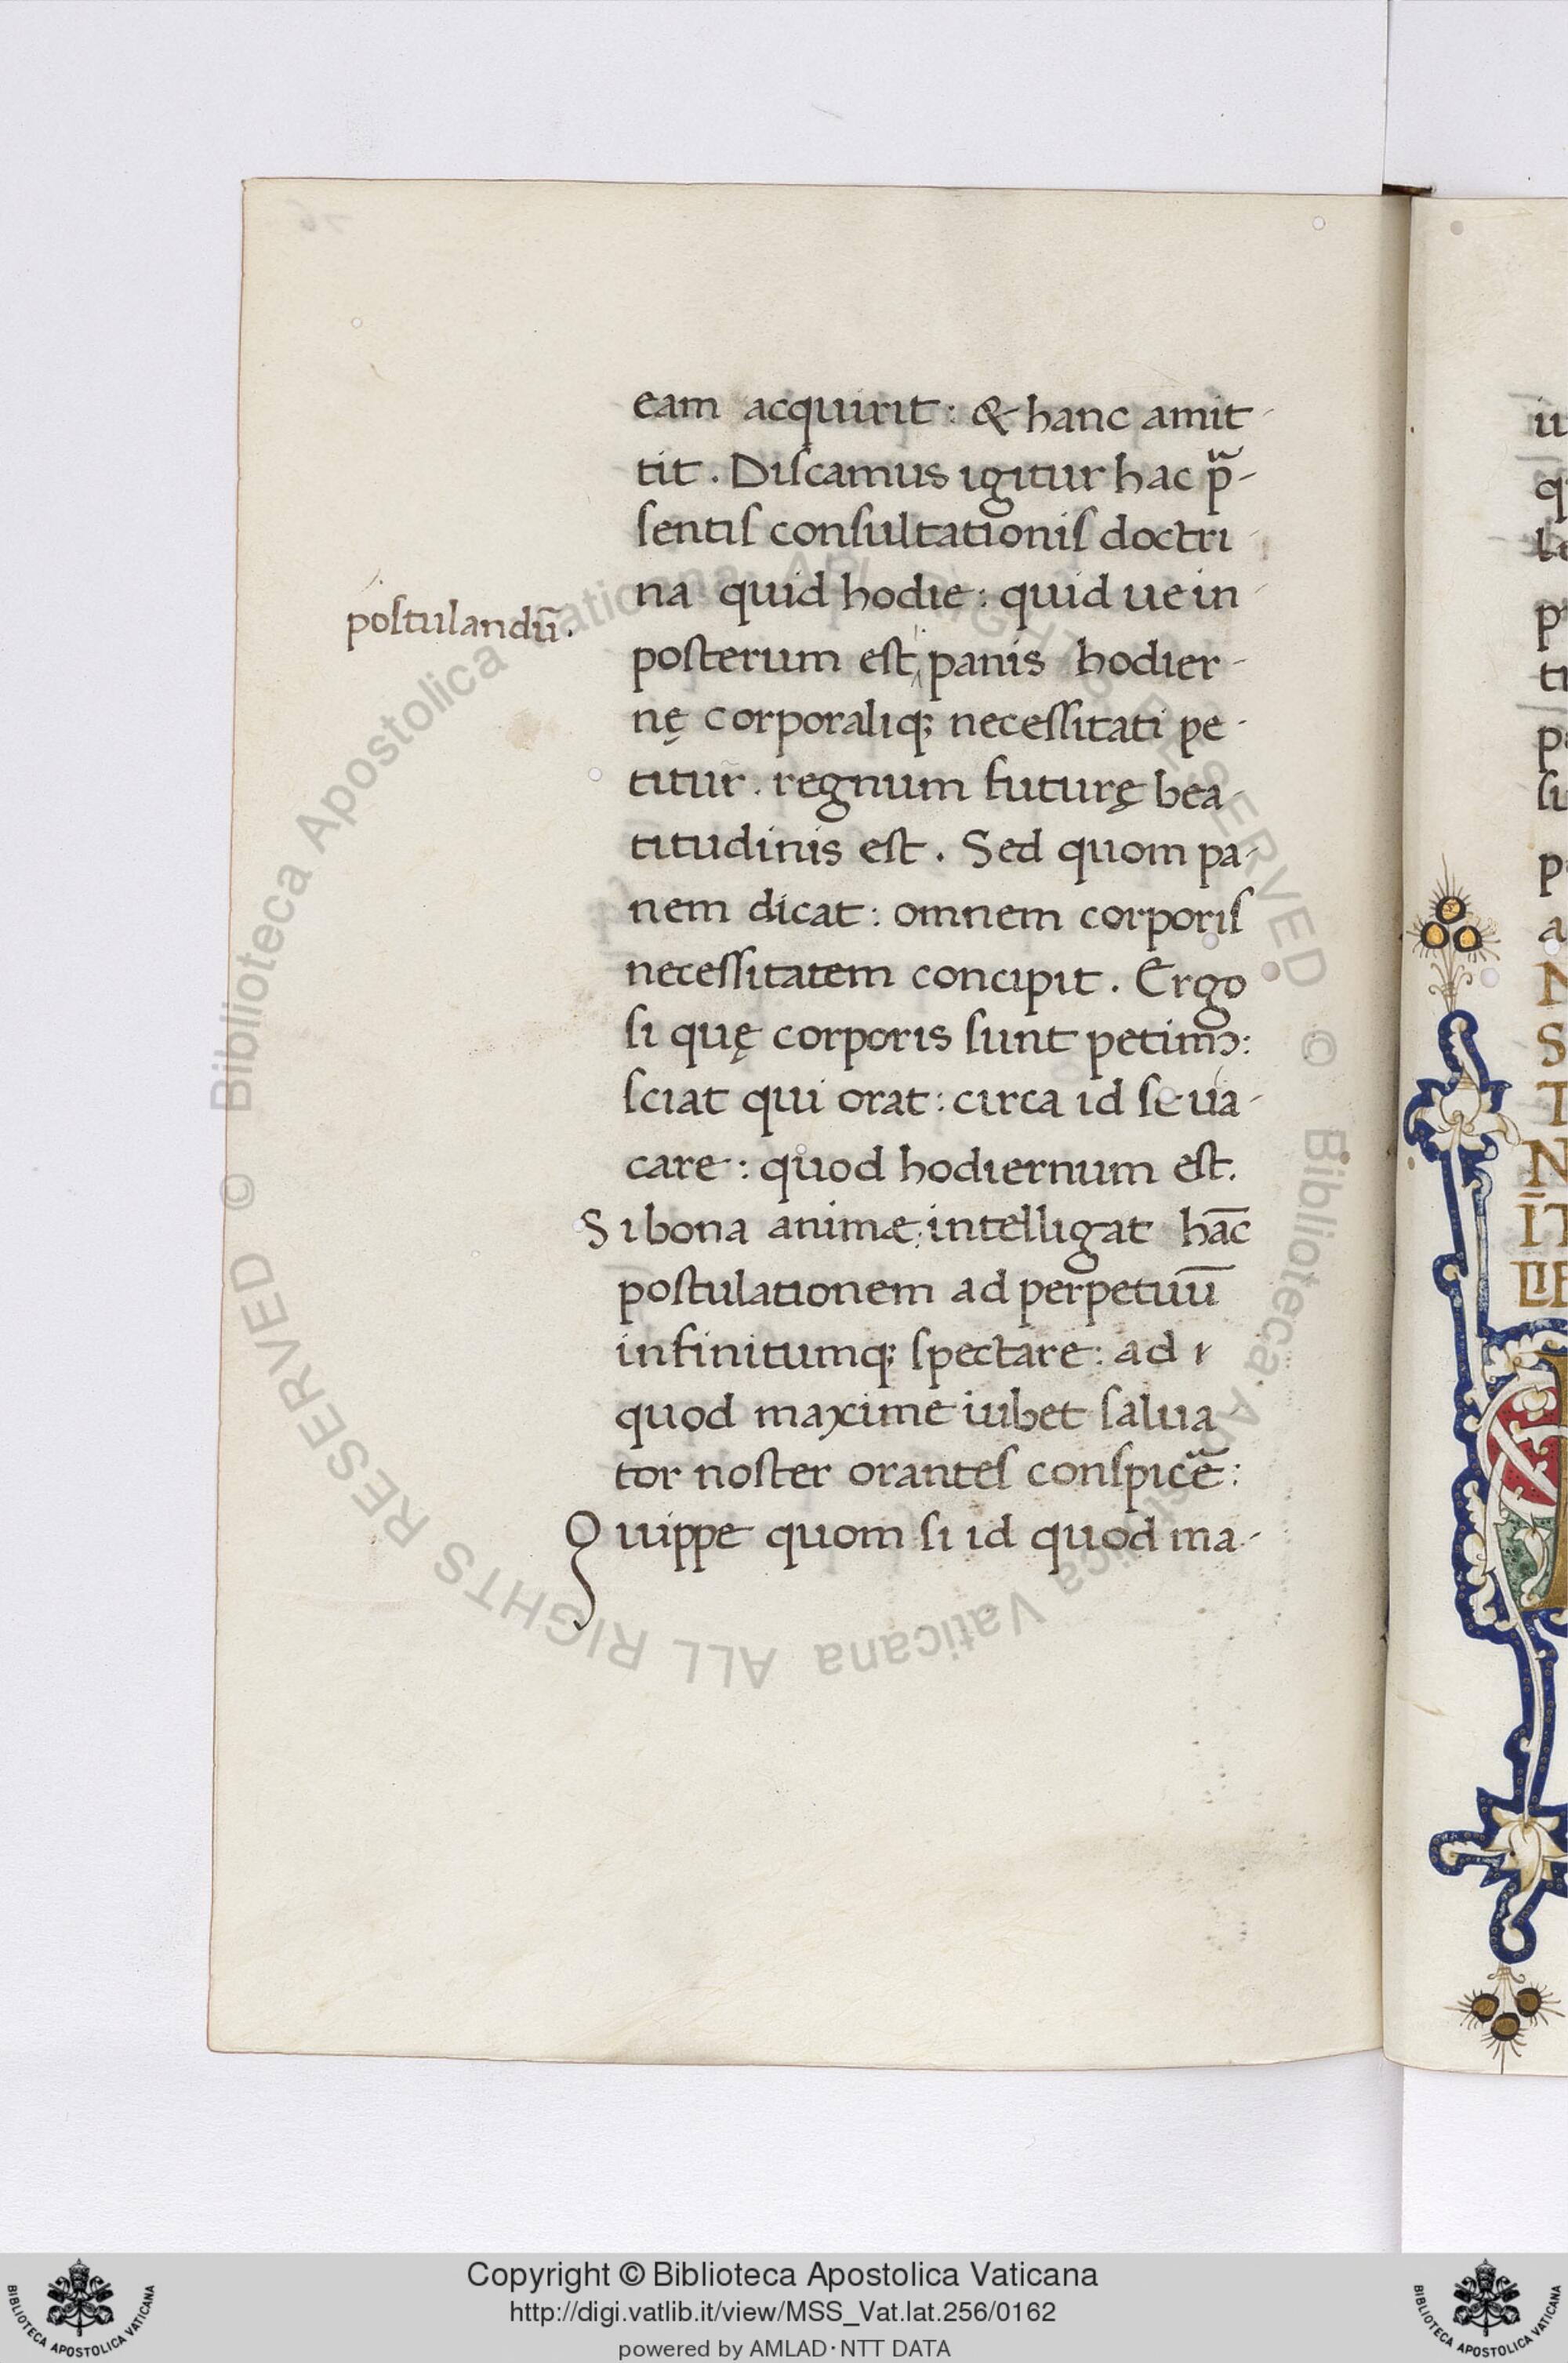 eam acquirit: & hanc amit-
tit. Discamus igitur hac p̄ᵃ-
sentis consultationis doctri-
na quid hodie: quid ue in
postulandū.
posterum est panis hodier-
nę corporaliq; necessitati pe-
titur. regnum futurę bea-
titudinis est. Sed quom pa-
nem dicat: omnem corporis
necessitatem concipit. Ergo
si quę corporis sunt petimꝰ:
sciat qui orat: circa id se ua-
care: quod hodiernum est.
Si bona animæ: intelligat hāc
postulationem ad perpetuū
infinitumq; spectare: ad
quod maxime iubet salua
tor noster orantes conspicẽ:
Quippe quom si id quod ma-
Copyright © Biblioteca Apostolica Vaticana
http://digi.vatlib.it/view/MSS_Vat.lat.256/0162
powered by AMLAD·NTT DATA
BIBLIOTECA APOSTOLICA VATICANA
BIBLIOTECA APOSTOLICA VATICANA
© Biblioteca Apostolica Vaticana ALL RIGHTS RESERVED
© Biblioteca Apostolica Vaticana ALL RIGHTS RESERVED